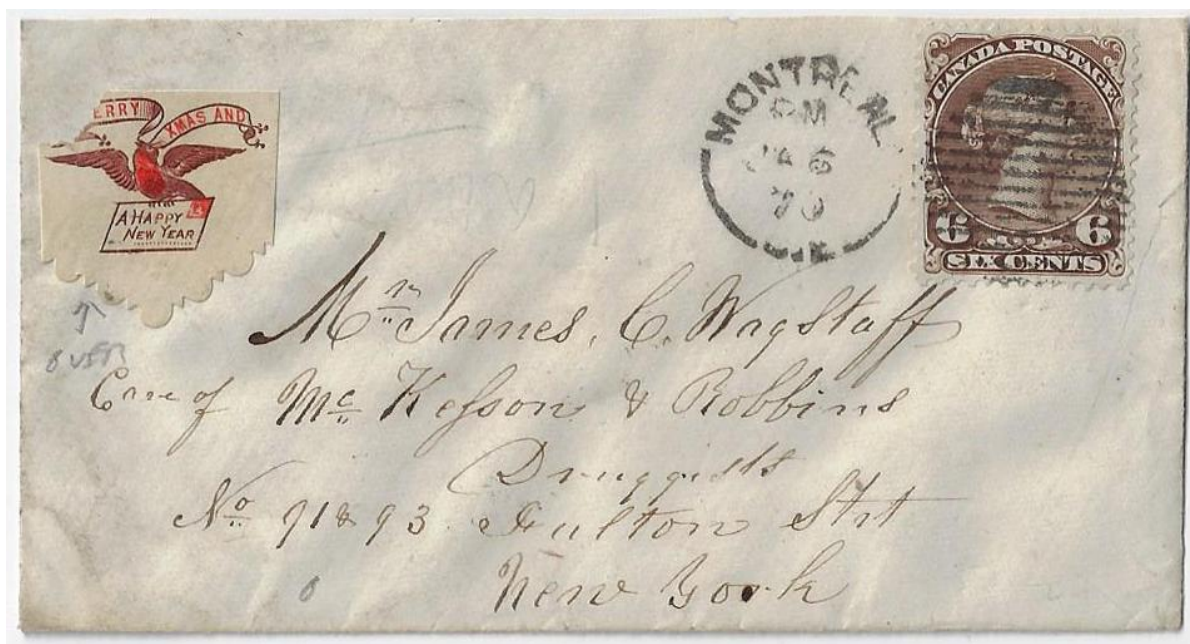 ERRY XMAS AND
A HAPPY
NEW YEAR
OVER
MONTREAL
PM
JA 6
70
CANADA POSTAGE
6 6
SIX CENTS
Mr. James. C. Wagstaff
Care of Mc Kesson & Robbins
Druggists
No 91 & 93 Fulton Strt
New York